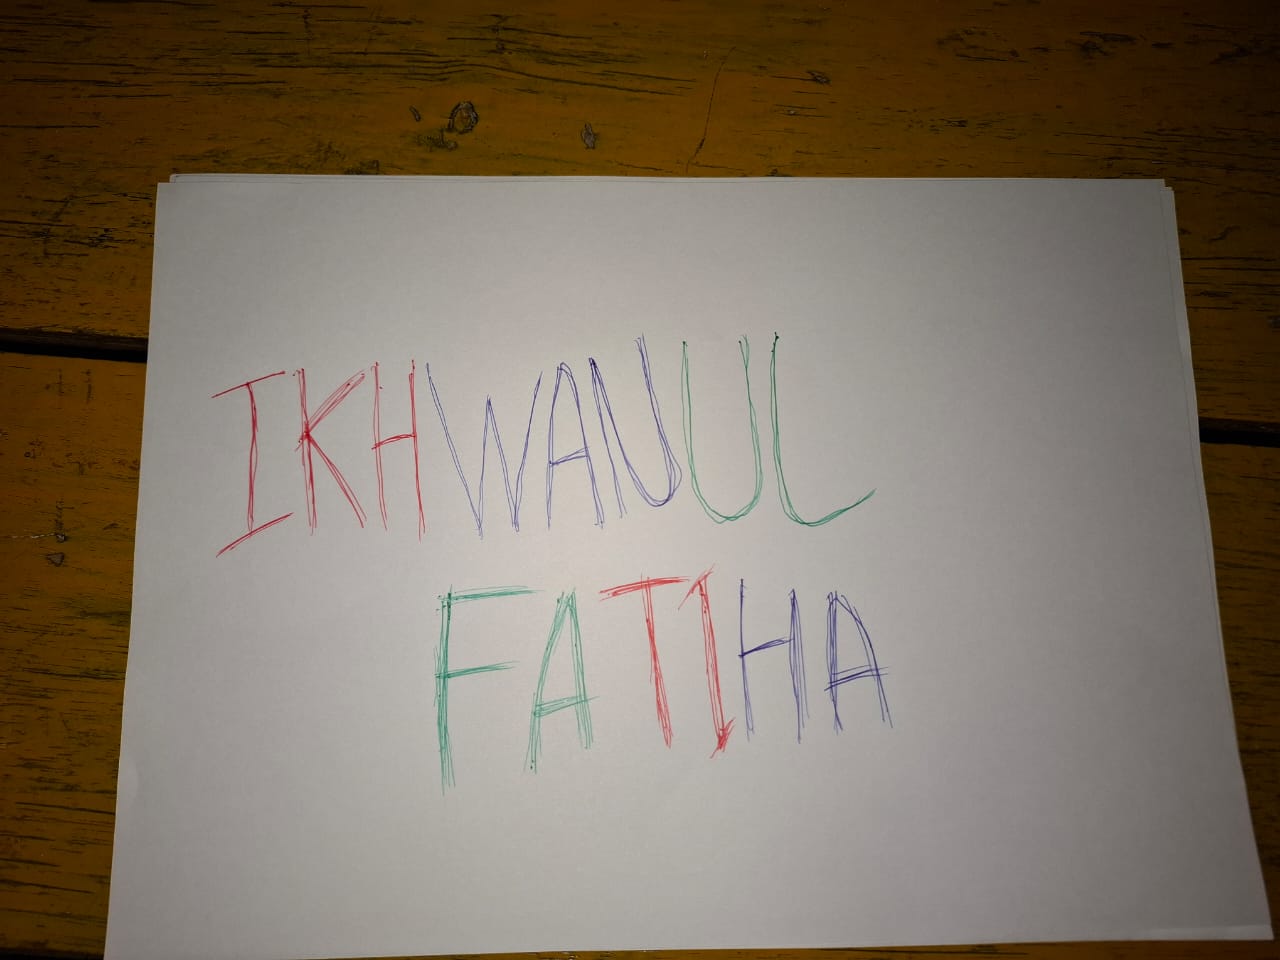 IKHWANUL
FATIHA